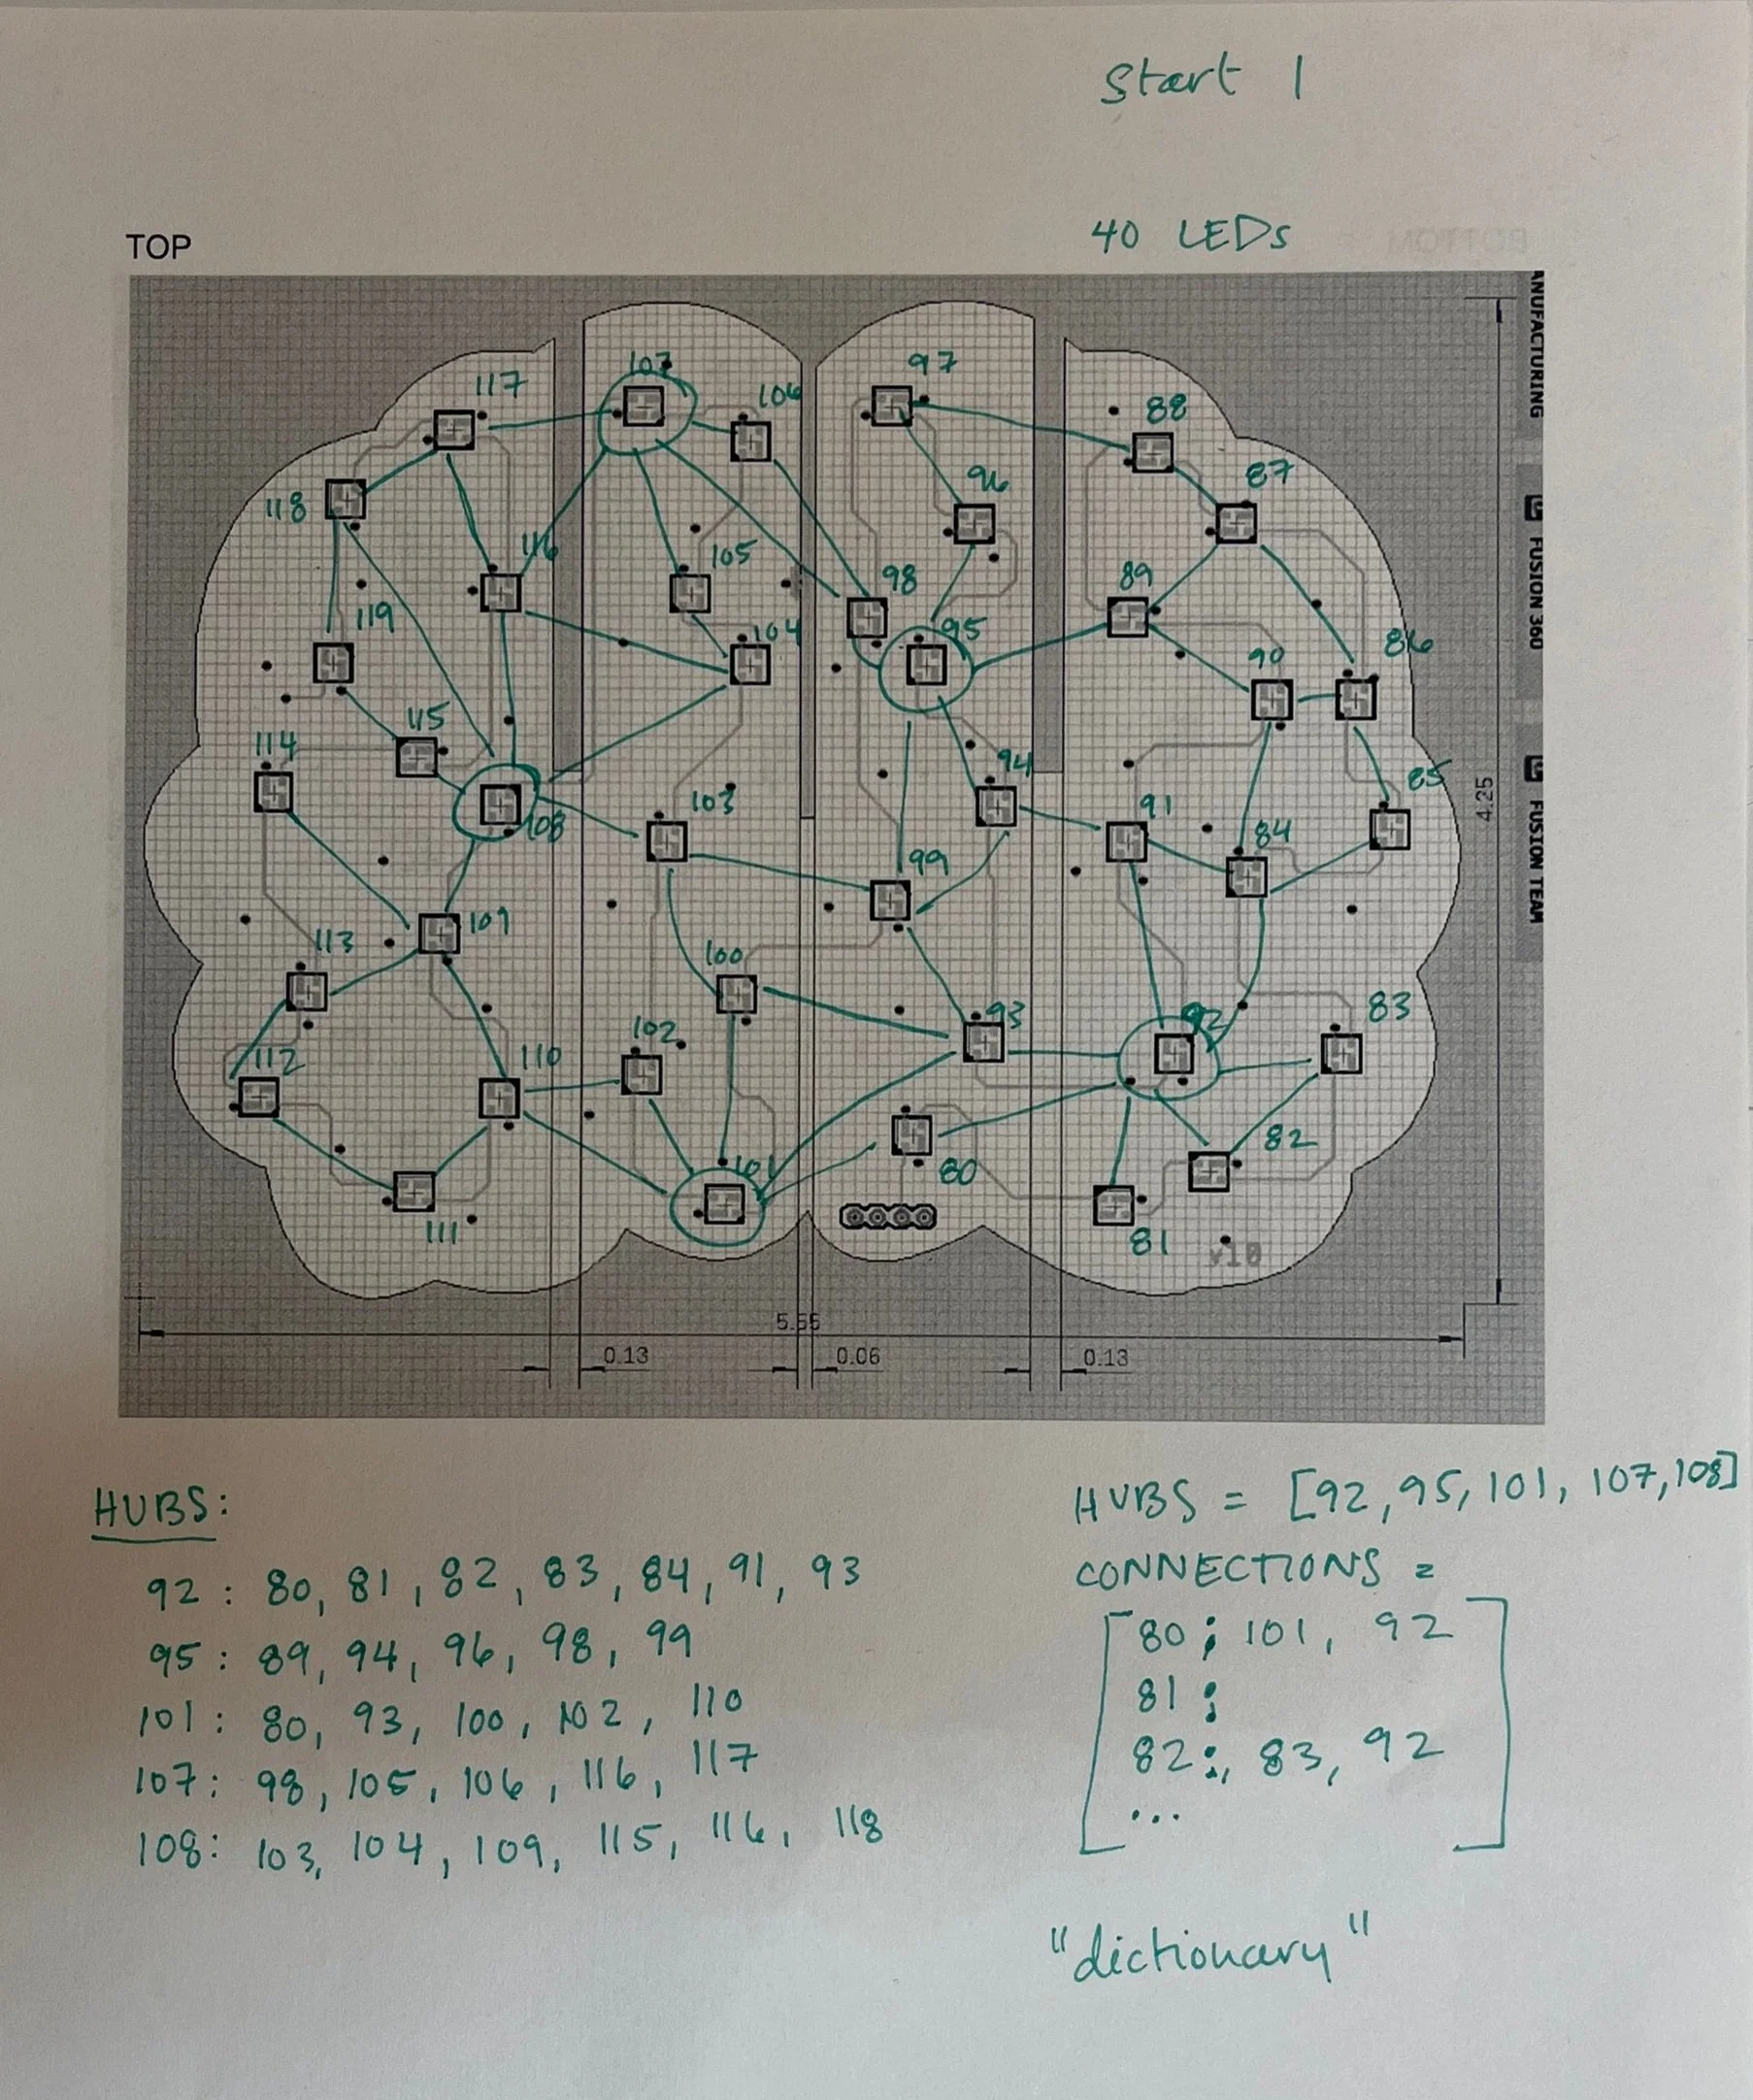 Start 1
40 LEDs
TOP
BOTTOM
ANUFACTURING
FUSION 360
FUSION TEAM
107
97
117
106
88
96
87
118
116
105
98
89
119
104
95
86
90
115
114
94
85
103
91
108
84
99
109
113
100
83
102
93
92
112
110
82
101
80
111
81
v10
4.25
5.55
0.13
0.06
0.13
HUBS:
92 : 80, 81, 82, 83, 84, 91, 93
95 : 89, 94, 96, 98, 99
101 : 80, 93, 100, 102, 110
107: 98, 105, 106, 116, 117
108: 103, 104, 109, 115, 116, 118
HUBS = [92, 95, 101, 107, 108]
CONNECTIONS =
[80; 101, 92
81;
82:, 83, 92
...]
"dictionary"